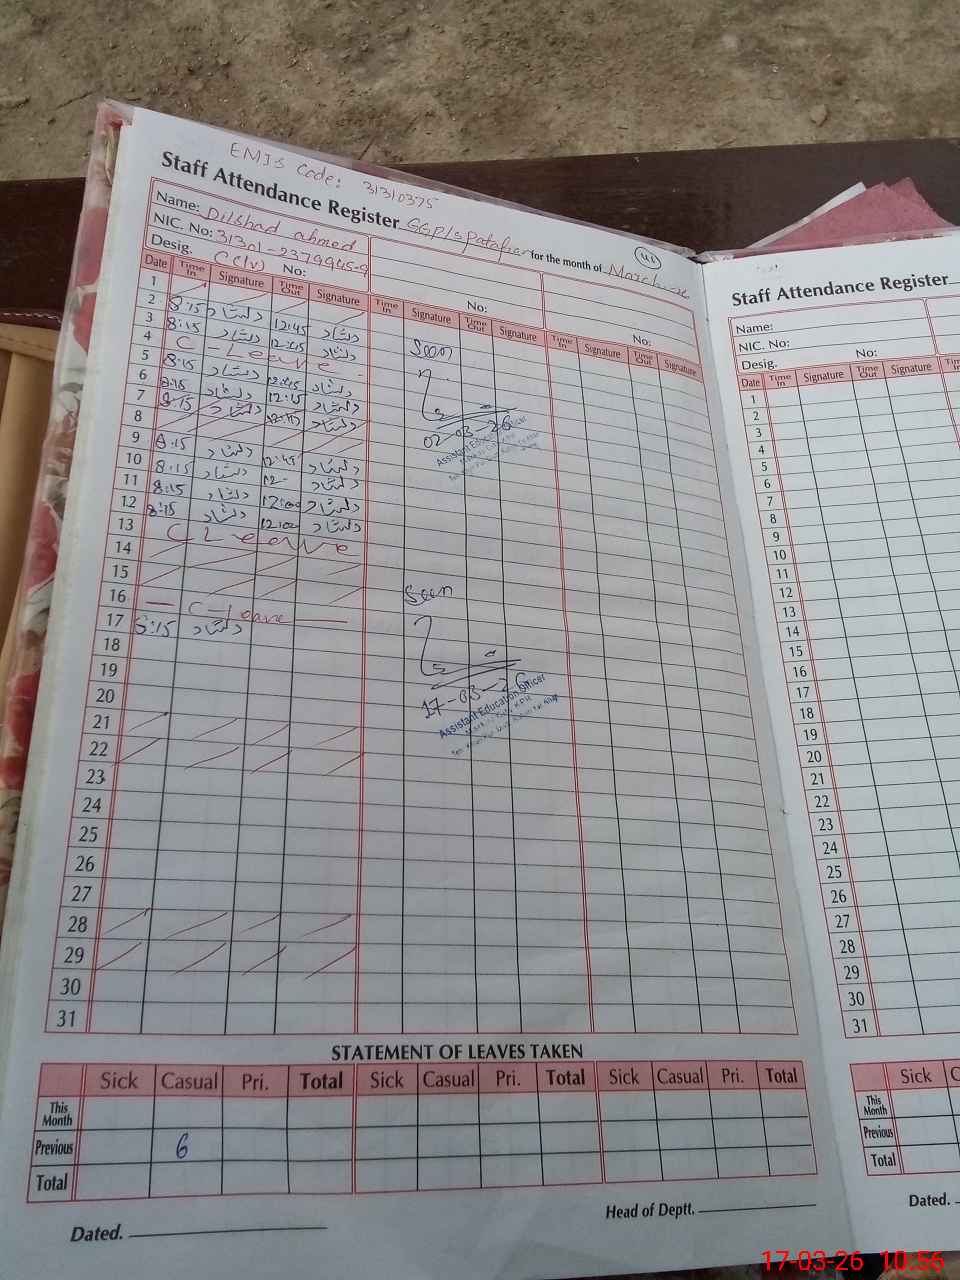 EMIS Code: 31310375
Staff Attendance Register GGPS for the month of March 26
Name: Dilshad ahmed
NIC. No: 31301-2379945-9
Desig. C(IV) No:
No:
No:
Date Time In Signature Time Out Signature Time In Signature Time Out Signature Time In Signature Time Out Signature
1
2 8:15 دلشاد 12:45 دلشاد Seen
3 8:15 دلشاد 12:45 دلشاد
4 C Leave
5 8:15 دلشاد 12:45 دلشاد
6 8:15 دلشاد 12:15 دلشاد
7 8:15 دلشاد 12:45 دلشاد
02-03-26
Assistant Education Officer
8
9 8:15 دلشاد 12:45 دلشاد
10 8:15 دلشاد 12- دلشاد
11 8:15 دلشاد 12:00 دلشاد
12 8:15 دلشاد 12:00 دلشاد
13 C Leave
14
15
16 C-Leave Seen
17 8:15 دلشاد
18
19
20
17-03-26
Assistant Education Officer
21
22
23
24
25
26
27
28
29
30
31
STATEMENT OF LEAVES TAKEN
Sick Casual Pri. Total Sick Casual Pri. Total Sick Casual Pri. Total
This Month
Previous 6
Total
Dated.
Head of Deptt.
Staff Attendance Register
Name:
NIC. No:
Desig. No:
Date Time In Signature Time Out Signature Time In
1
2
3
4
5
6
7
8
9
10
11
12
13
14
15
16
17
18
19
20
21
22
23
24
25
26
27
28
29
30
31
Sick
This Month
Previous
Total
Dated.
17-03-26 10:56